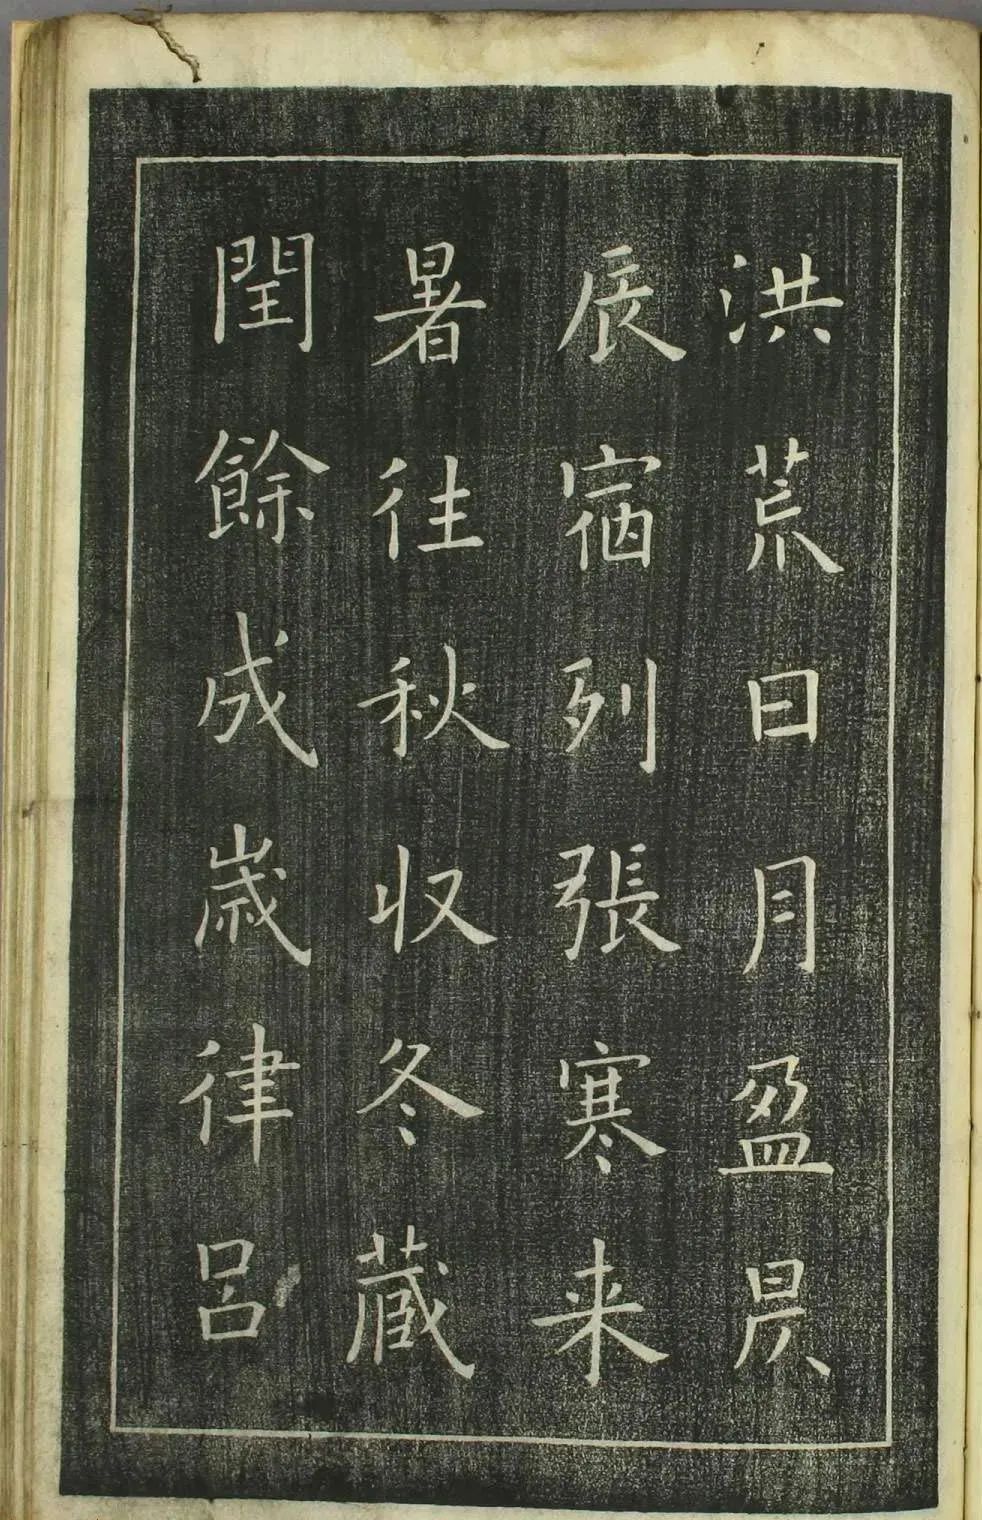 洪荒日月盈昃
辰宿列張寒来
暑往秋收冬蔵
閏餘成歲律呂